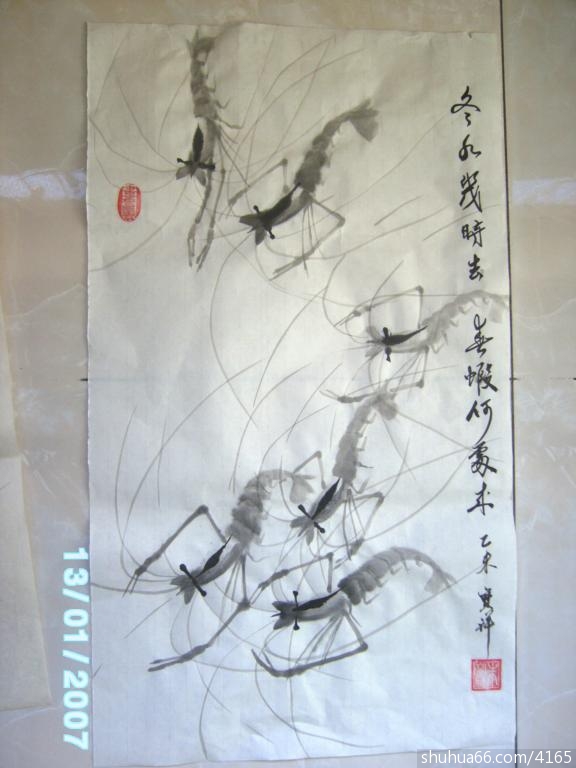 冬水幾時去 春蝦何處來 乙未
13/01/2007
shuhua66.com/4165